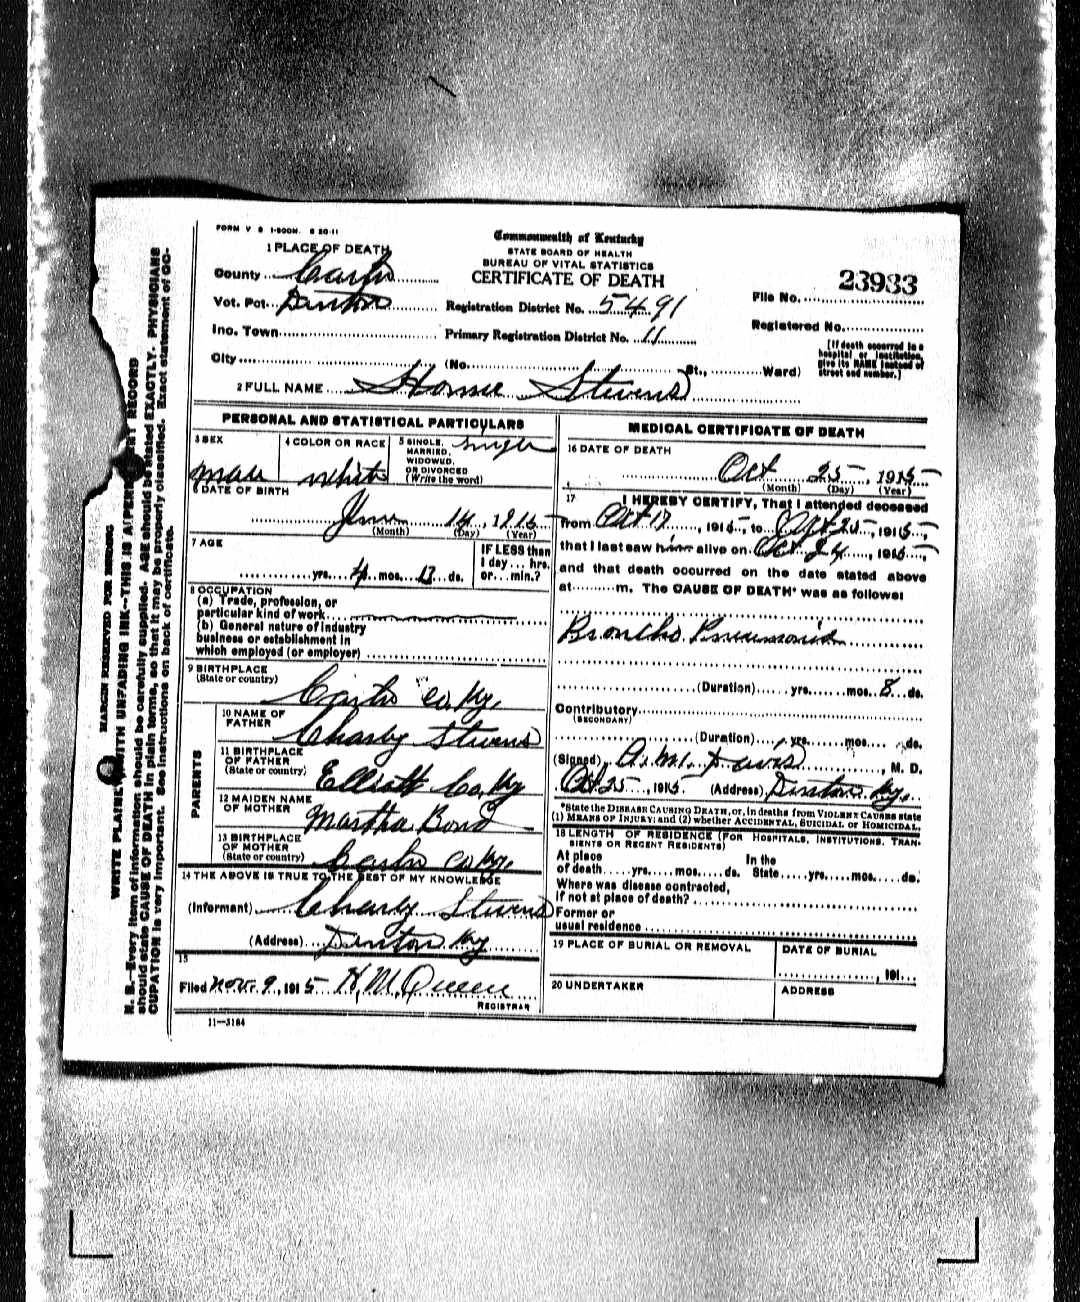 FORM V S 1-500M. 6 20-11
Commonwealth of Kentucky
STATE BOARD OF HEALTH
BUREAU OF VITAL STATISTICS
CERTIFICATE OF DEATH
1 PLACE OF DEATH
County Carter
Vot. Pct. Denton
Inc. Town
City (No. St., Ward)
Registration District No. 5491
Primary Registration District No. 11
23933
File No.
Registered No.
[If death occurred in a
hospital or institution,
give its NAME instead of
street and number.]
2 FULL NAME Stevens
PERSONAL AND STATISTICAL PARTICULARS
3 SEX
male
4 COLOR OR RACE
white
5 SINGLE,
MARRIED,
WIDOWED,
OR DIVORCED
(Write the word)
single
6 DATE OF BIRTH
June 14, 1915
(Month) (Day) (Year)
7 AGE
yrs. 4 mos. 13 ds.
IF LESS than
1 day ... hrs.
or ... min.?
8 OCCUPATION
(a) Trade, profession, or
particular kind of work
(b) General nature of industry
business or establishment in
which employed (or employer)
9 BIRTHPLACE
(State or country)
Carter Co. Ky.
PARENTS
10 NAME OF
FATHER
Charly Stevens
11 BIRTHPLACE
OF FATHER
(State or country)
Elliott Co. Ky
12 MAIDEN NAME
OF MOTHER
Martha Bond
13 BIRTHPLACE
OF MOTHER
(State or country)
Carter Co Ky.
14 THE ABOVE IS TRUE TO THE BEST OF MY KNOWLEDGE
(Informant) Charly Stevens
(Address) Denton Ky
15
Filed Nov. 9, 1915 H. M. Queen
REGISTRAR
11-3184
MEDICAL CERTIFICATE OF DEATH
16 DATE OF DEATH
Oct 25, 1915
(Month) (Day) (Year)
17 I HEREBY CERTIFY, That I attended deceased
from Oct 17, 1915, to Oct 25, 1915,
that I last saw him alive on Oct 24, 1915,
and that death occurred on the date stated above
at m. The CAUSE OF DEATH* was as follows:
Broncho Pneumonia
(Duration) yrs. mos. 8 ds.
Contributory
(SECONDARY)
(Duration) yrs. mos. ds.
(Signed) A. M. Davis, M. D.
Oct 25, 1915 (Address) Denton Ky.
*State the DISEASE CAUSING DEATH, or, in deaths from VIOLENT CAUSES state
(1) MEANS OF INJURY; and (2) whether ACCIDENTAL, SUICIDAL OR HOMICIDAL.
18 LENGTH OF RESIDENCE (FOR HOSPITALS, INSTITUTIONS, TRAN-
SIENTS OR RECENT RESIDENTS)
At place In the
of death yrs. mos. ds. State yrs. mos. ds.
Where was disease contracted,
if not at place of death?
Former or
usual residence
19 PLACE OF BURIAL OR REMOVAL
DATE OF BURIAL
, 191
20 UNDERTAKER
ADDRESS
MARGIN RESERVED FOR BINDING
WRITE PLAINLY WITH UNFADING INK--THIS IS A RECORD
N. B.--Every item of information should be carefully supplied. AGE should be stated EXACTLY. PHYSICIANS
should state CAUSE OF DEATH in plain terms, so that it may be properly classified. Exact statement of OC-
CUPATION is very important. See instructions on back of certificate.